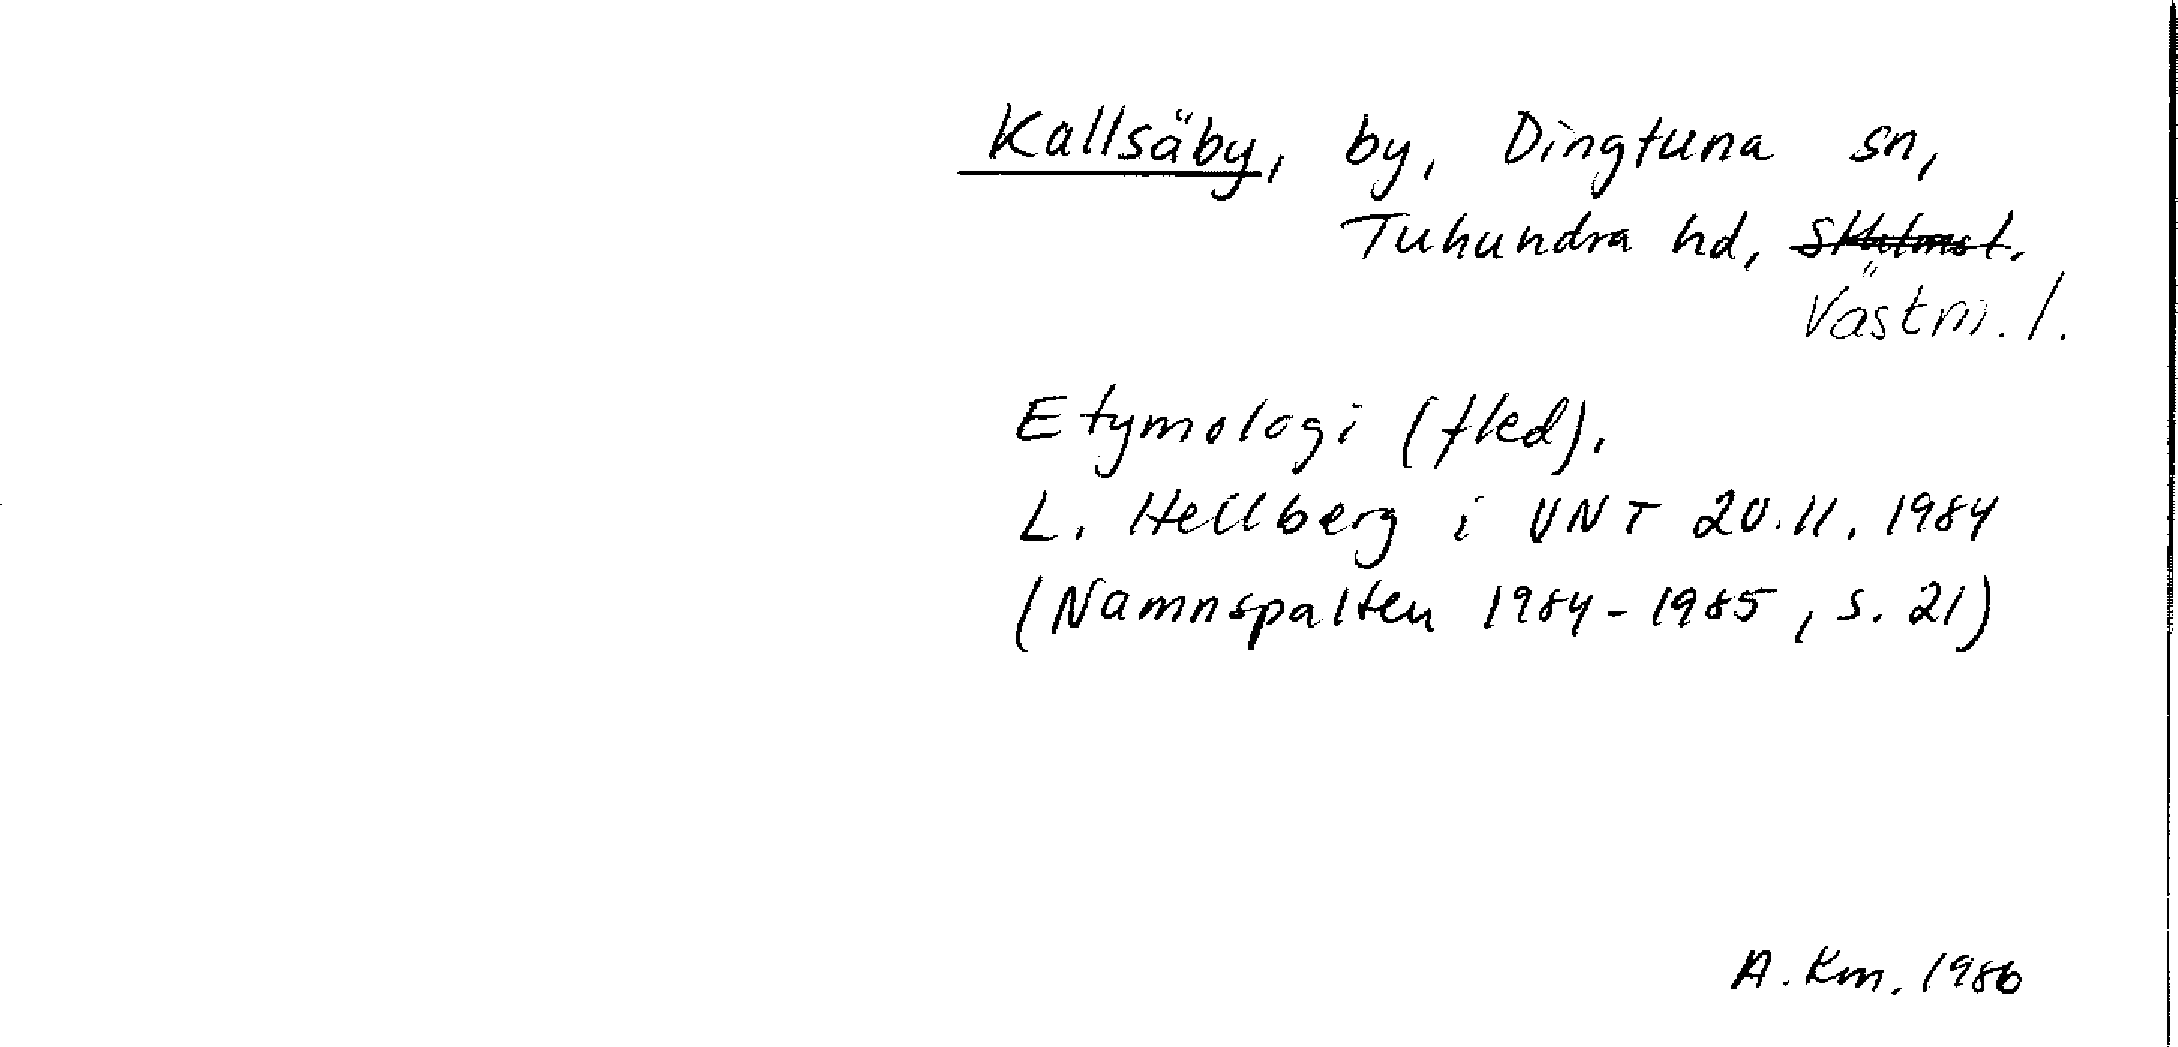 Kallsäby, by, Dingtuna sn,
Tuhundra hd,
Västm. l.
Etymologi (fled).
L. Hellberg i UNT 20.11.1984
(Namnspalten 1984-1985, s. 21)
A. Km. 1986